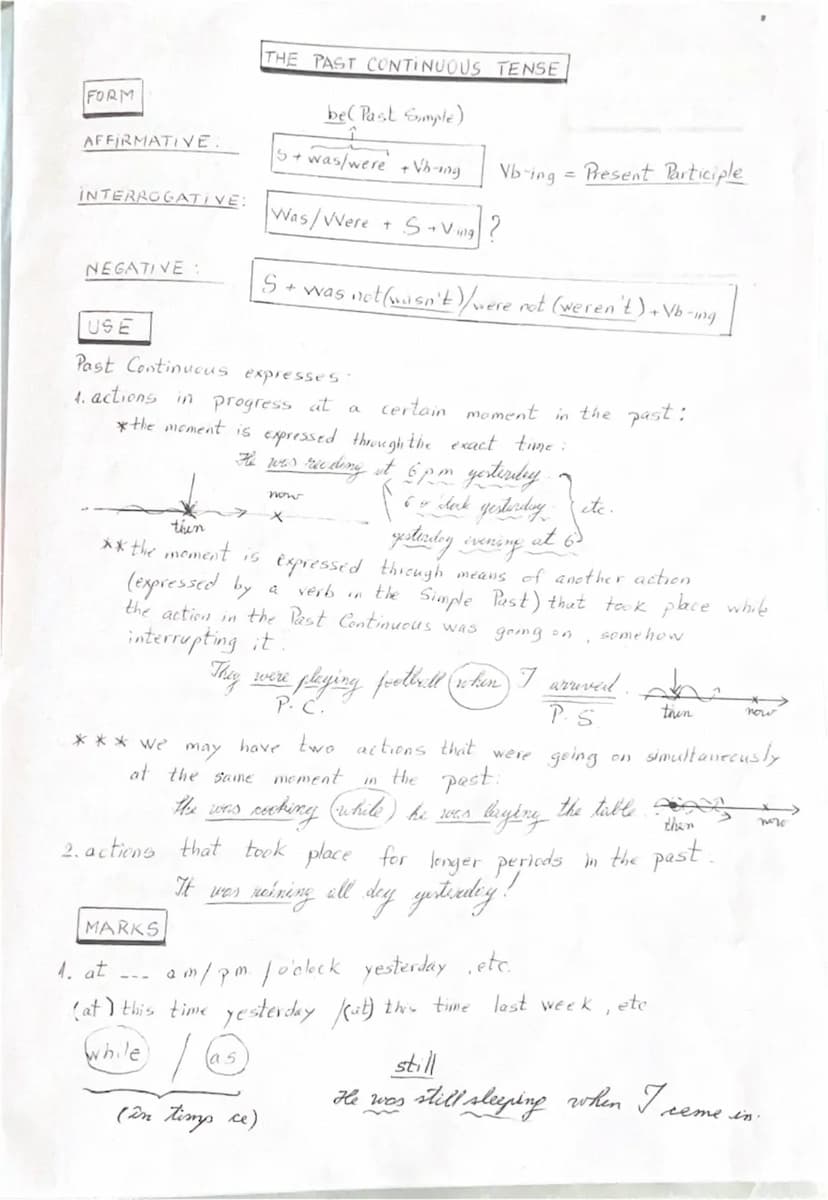 THE PAST CONTINUOUS TENSE
FORM
be (Past Simple)
AFFIRMATIVE:
S + was/were + Vb-ing
Vb-ing = Present Participle
INTERROGATIVE:
Was/Were + S + Ving ?
NEGATIVE :
S + was not (wasn't)/were not (weren't) + Vb-ing
USE
Past Continuous expresses:
1. actions in progress at a certain moment in the past:
* the moment is expressed through the exact time:
He was reading at 6 pm yesterday.
now
6 o'clock yesterday etc.
then
yesterday evening at 6
** the moment is expressed through means of another action
(expressed by a verb in the Simple Past) that took place while
the action in the Past Continuous was going on, somehow
interrupting it.
They were playing football (when) I arrived.
P. C.
P. S
then now
*** We may have two actions that were going on simultaneously
at the same moment in the past:
She was cooking (while) he was laying the table.
then now
2. actions that took place for longer periods in the past.
It was raining all day yesterday!
MARKS
1. at --- am/pm/o'clock yesterday, etc.
(at) this time yesterday /(at) this time last week, etc
while / as
still
(în timp ce)
He was still sleeping when I came in.